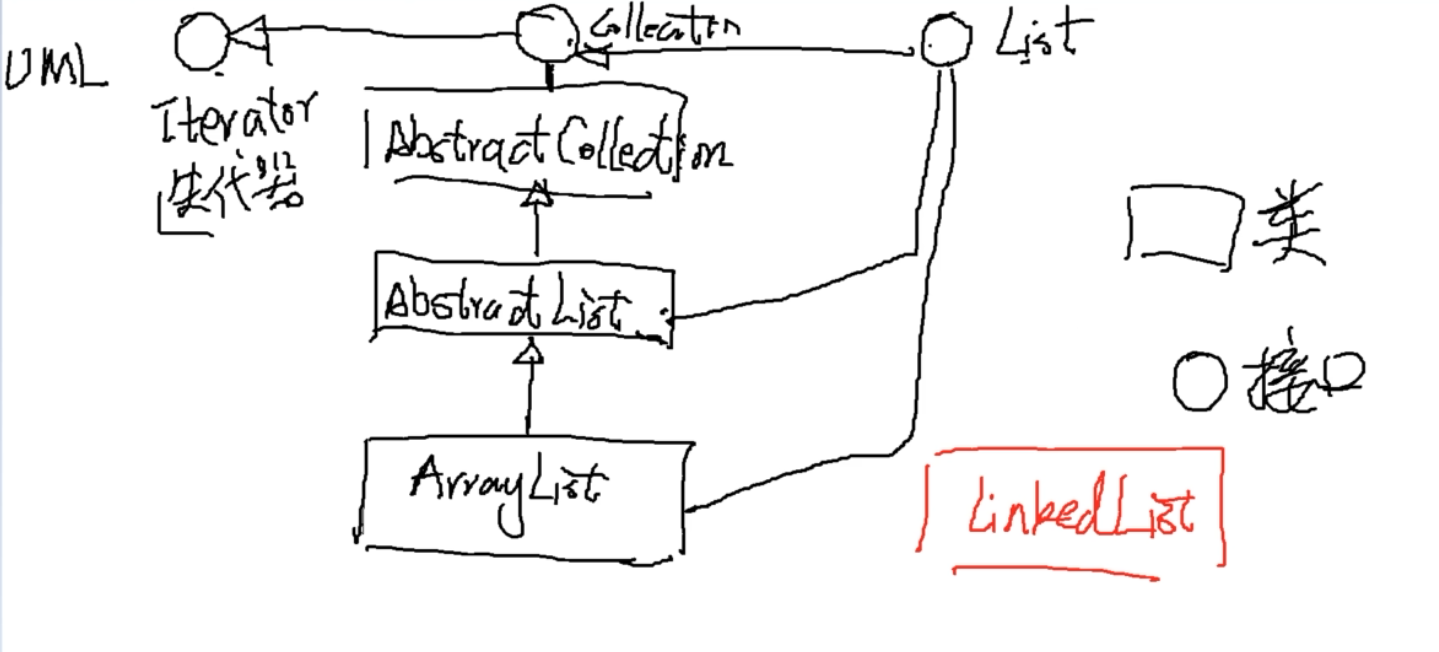 UML
Iterator
迭代器
Collection
List
AbstractCollection
AbstractList
ArrayList
LinkedList
类
接口